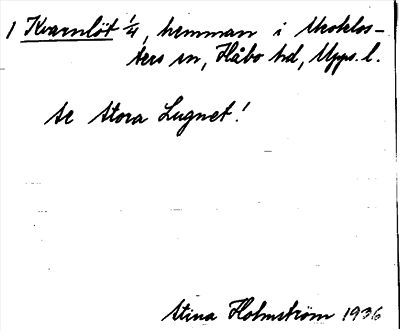 1 Kvarnlöt 1/4, hemman i Skoklos-
ters sn, Håbo hd, Upps. l.
se Stora Lugnet!
Stina Holmström 1936